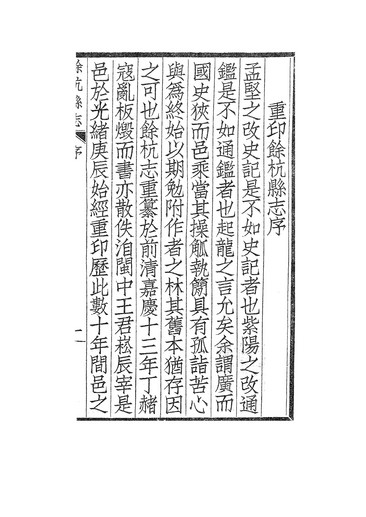 重印餘杭縣志序
孟堅之改史記是不如史記者也紫陽之改通
鑑是不如通鑑者也起龍之言允矣余謂廣而
國史狹而邑乘當其操觚執簡具有孤詣苦心
與爲終始以期勉附作者之林其舊本猶存因
之可也餘杭志重纂於前清嘉慶十三年丁赭
寇亂板燬而書亦散佚洎閩中王君崧辰宰是
邑於光緒庚辰始經重印歷此數十年間邑之
餘杭縣志 序